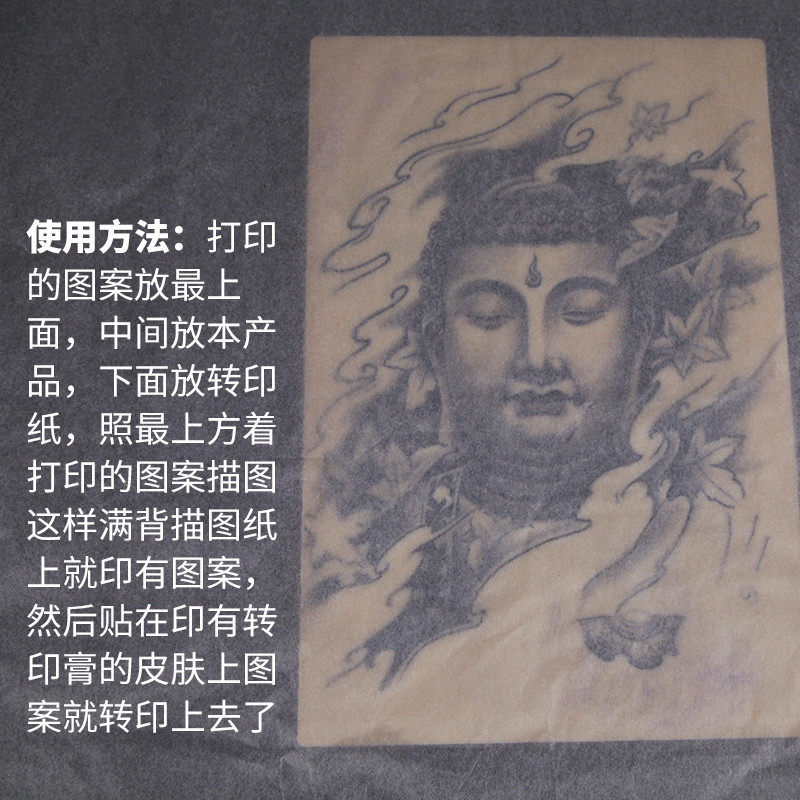 使用方法：打印
的图案放最上
面，中间放本产
品，下面放转印
纸，照最上方着
打印的图案描图
这样满背描图纸
上就印有图案，
然后贴在印有转
印膏的皮肤上图
案就转印上去了